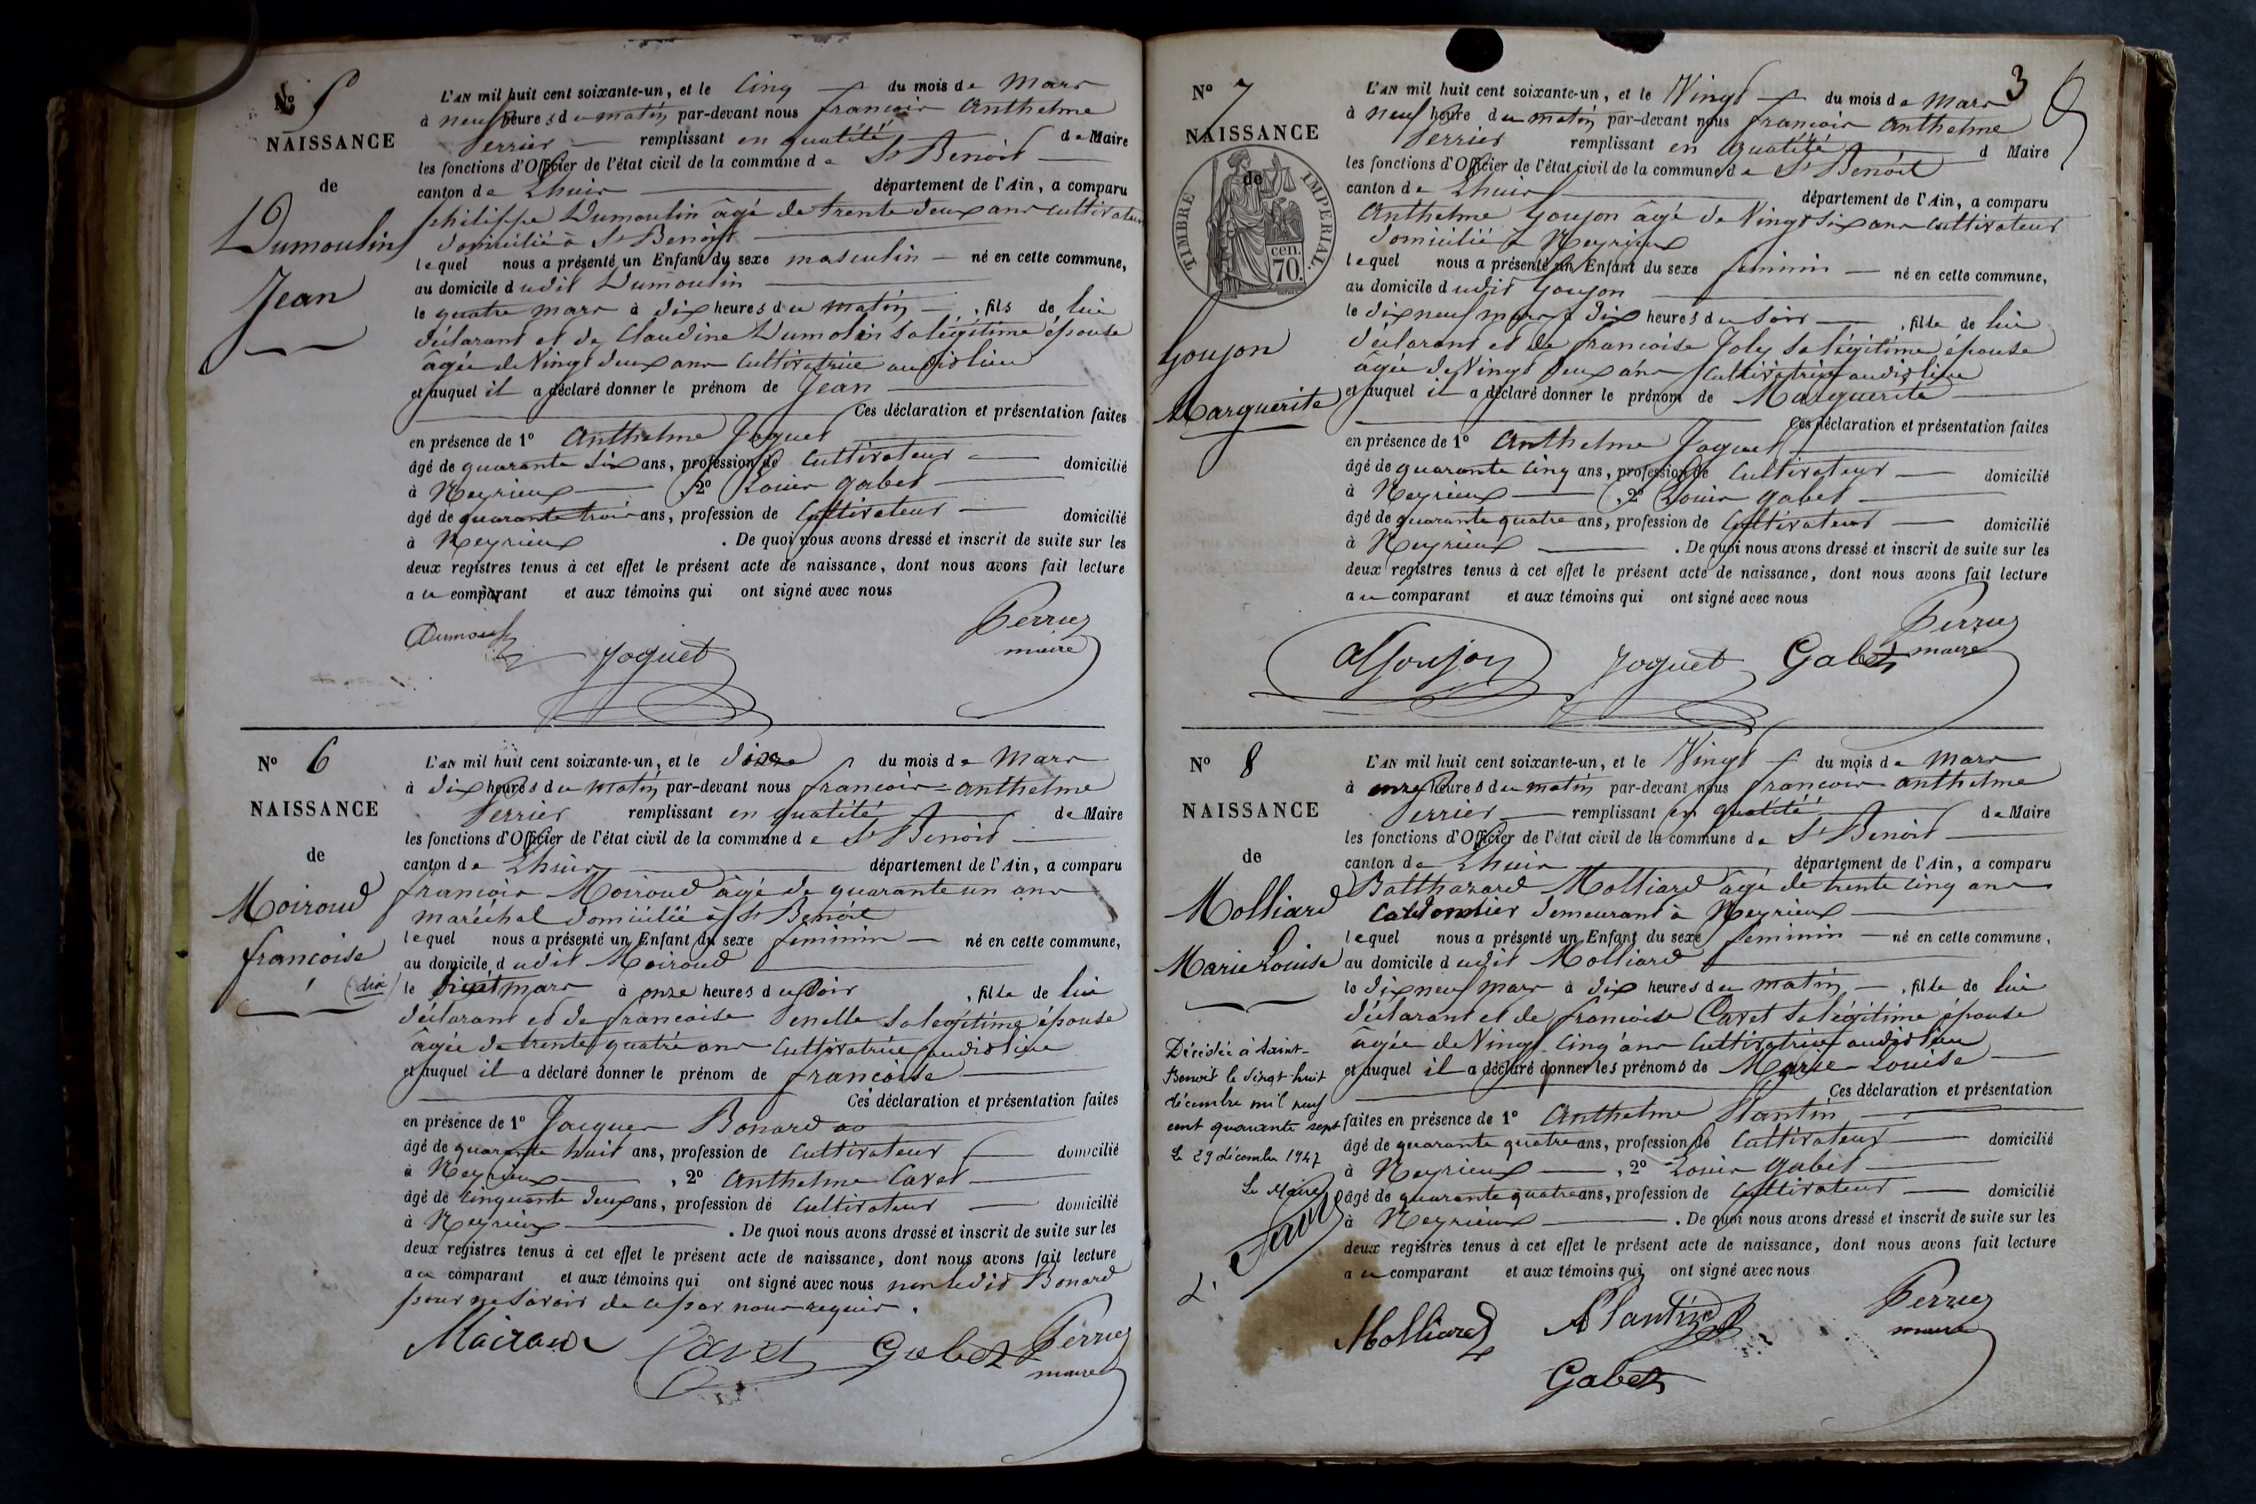 N° 5
NAISSANCE
de
Dumoulin
Jean
L'AN mil huit cent soixante-un, et le Cinq du mois de Mars
à neuf heures du matin par-devant nous françois Anthelme
Perrier remplissant en qualité de Maire
les fonctions d'Officier de l'état civil de la commune de St Benoit
canton de Lhuis département de l'Ain, a comparu
philippe Dumoulin âgé de trente deux ans cultivateur
domicilié à St Benoit
lequel nous a présenté un Enfant du sexe masculin né en cette commune,
au domicile dudit Dumoulin
le quatre mars à dix heures du matin, fils de lui
déclarant et de Claudine Dumolin sa légitime épouse
âgée de Vingt deux ans Cultivatrice audit lieu
et auquel il a déclaré donner le prénom de Jean
Ces déclaration et présentation faites
en présence de 1° Anthelme Joguet
âgé de quarante six ans, profession de Cultivateur domicilié
à Neyrieux, 2° Louis Gabet
âgé de quarante trois ans, profession de Cultivateur domicilié
à Neyrieux. De quoi nous avons dressé et inscrit de suite sur les
deux registres tenus à cet effet le présent acte de naissance, dont nous avons fait lecture
au comparant et aux témoins qui ont signé avec nous
Joguet
Perrier
maire
N° 6
NAISSANCE
de
Moiroud
françoise
(dix)
L'AN mil huit cent soixante-un, et le du mois de Mars
à dix heures du matin par-devant nous françois Anthelme
Perrier remplissant en qualité de Maire
les fonctions d'Officier de l'état civil de la commune de St Benoit
canton de Lhuis département de l'Ain, a comparu
françois Moiroud âgé de quarante un ans
maréchal domicilié à St Benoit
lequel nous a présenté un Enfant du sexe féminin né en cette commune,
au domicile dudit Moiroud
le mars à onze heures du soir, fille de lui
déclarant et de françoise Penelle sa légitime épouse
âgée de trente quatre ans Cultivatrice audit lieu
et auquel il a déclaré donner le prénom de françoise
Ces déclaration et présentation faites
en présence de 1° Jacques Bonard
âgé de quarante huit ans, profession de Cultivateur domicilié
à Neyrieux, 2° Anthelme Cavet
âgé de cinquante deux ans, profession de Cultivateur domicilié
à Neyrieux. De quoi nous avons dressé et inscrit de suite sur les
deux registres tenus à cet effet le présent acte de naissance, dont nous avons fait lecture
au comparant et aux témoins qui ont signé avec nous non ledit Bonard
pour ne savoir de ce par nous requis.
Moiroud Cavet Gabet Perrier
maire
3
N° 7
NAISSANCE
de
TIMBRE IMPERIAL.
70 cen.
Goujon
Marguerite
L'AN mil huit cent soixante-un, et le Vingt du mois de Mars
à neuf heure du matin par-devant nous françois Anthelme
Perrier remplissant en qualité d Maire
les fonctions d'Officier de l'état civil de la commune de St Benoit
canton de Lhuis département de l'Ain, a comparu
Anthelme Goujon âgé de Vingt six ans cultivateur
domicilié à Neyrieux
lequel nous a présenté un Enfant du sexe féminin né en cette commune,
au domicile dudit Goujon
le dix neuf mars à dix heures du soir, fille de lui
déclarant et de françoise Joly sa légitime épouse
âgée de Vingt deux ans Cultivatrice audit lieu
et auquel il a déclaré donner le prénom de Marguerite
Ces déclaration et présentation faites
en présence de 1° Anthelme Joguet
âgé de quarante cinq ans, profession de Cultivateur domicilié
à Neyrieux, 2° Louis Gabet
âgé de quarante quatre ans, profession de Cultivateur domicilié
à Neyrieux. De quoi nous avons dressé et inscrit de suite sur les
deux registres tenus à cet effet le présent acte de naissance, dont nous avons fait lecture
au comparant et aux témoins qui ont signé avec nous
A Goujon Joguet Gabet Perrier
maire
N° 8
NAISSANCE
de
Molliard
Marie Louise
Décédée à Saint-
Benoit le vingt-huit
décembre mil neuf
cent quarante sept
Le 29 décembre 1947
Le Maire
L'AN mil huit cent soixante-un, et le Vingt du mois de Mars
à onze heures du matin par-devant nous françois Anthelme
Perrier remplissant en qualité de Maire
les fonctions d'Officier de l'état civil de la commune de St Benoit
canton de Lhuis département de l'Ain, a comparu
Balthazard Molliard âgé de trente cinq ans
demeurant à Neyrieux
lequel nous a présenté un Enfant du sexe féminin né en cette commune,
au domicile dudit Molliard
le dix neuf mars à dix heures du matin, fille de lui
déclarant et de françoise Cavet sa légitime épouse
âgée de Vingt cinq ans Cultivatrice audit lieu
et auquel il a déclaré donner les prénoms de Marie Louise
Ces déclaration et présentation
faites en présence de 1° Anthelme Plantin
âgé de quarante quatre ans, profession de Cultivateur domicilié
à Neyrieux, 2° Louis Gabet
âgé de quarante quatre ans, profession de Cultivateur domicilié
à Neyrieux. De quoi nous avons dressé et inscrit de suite sur les
deux registres tenus à cet effet le présent acte de naissance, dont nous avons fait lecture
au comparant et aux témoins qui ont signé avec nous
Molliard Plantin Perrier
maire
Gabet